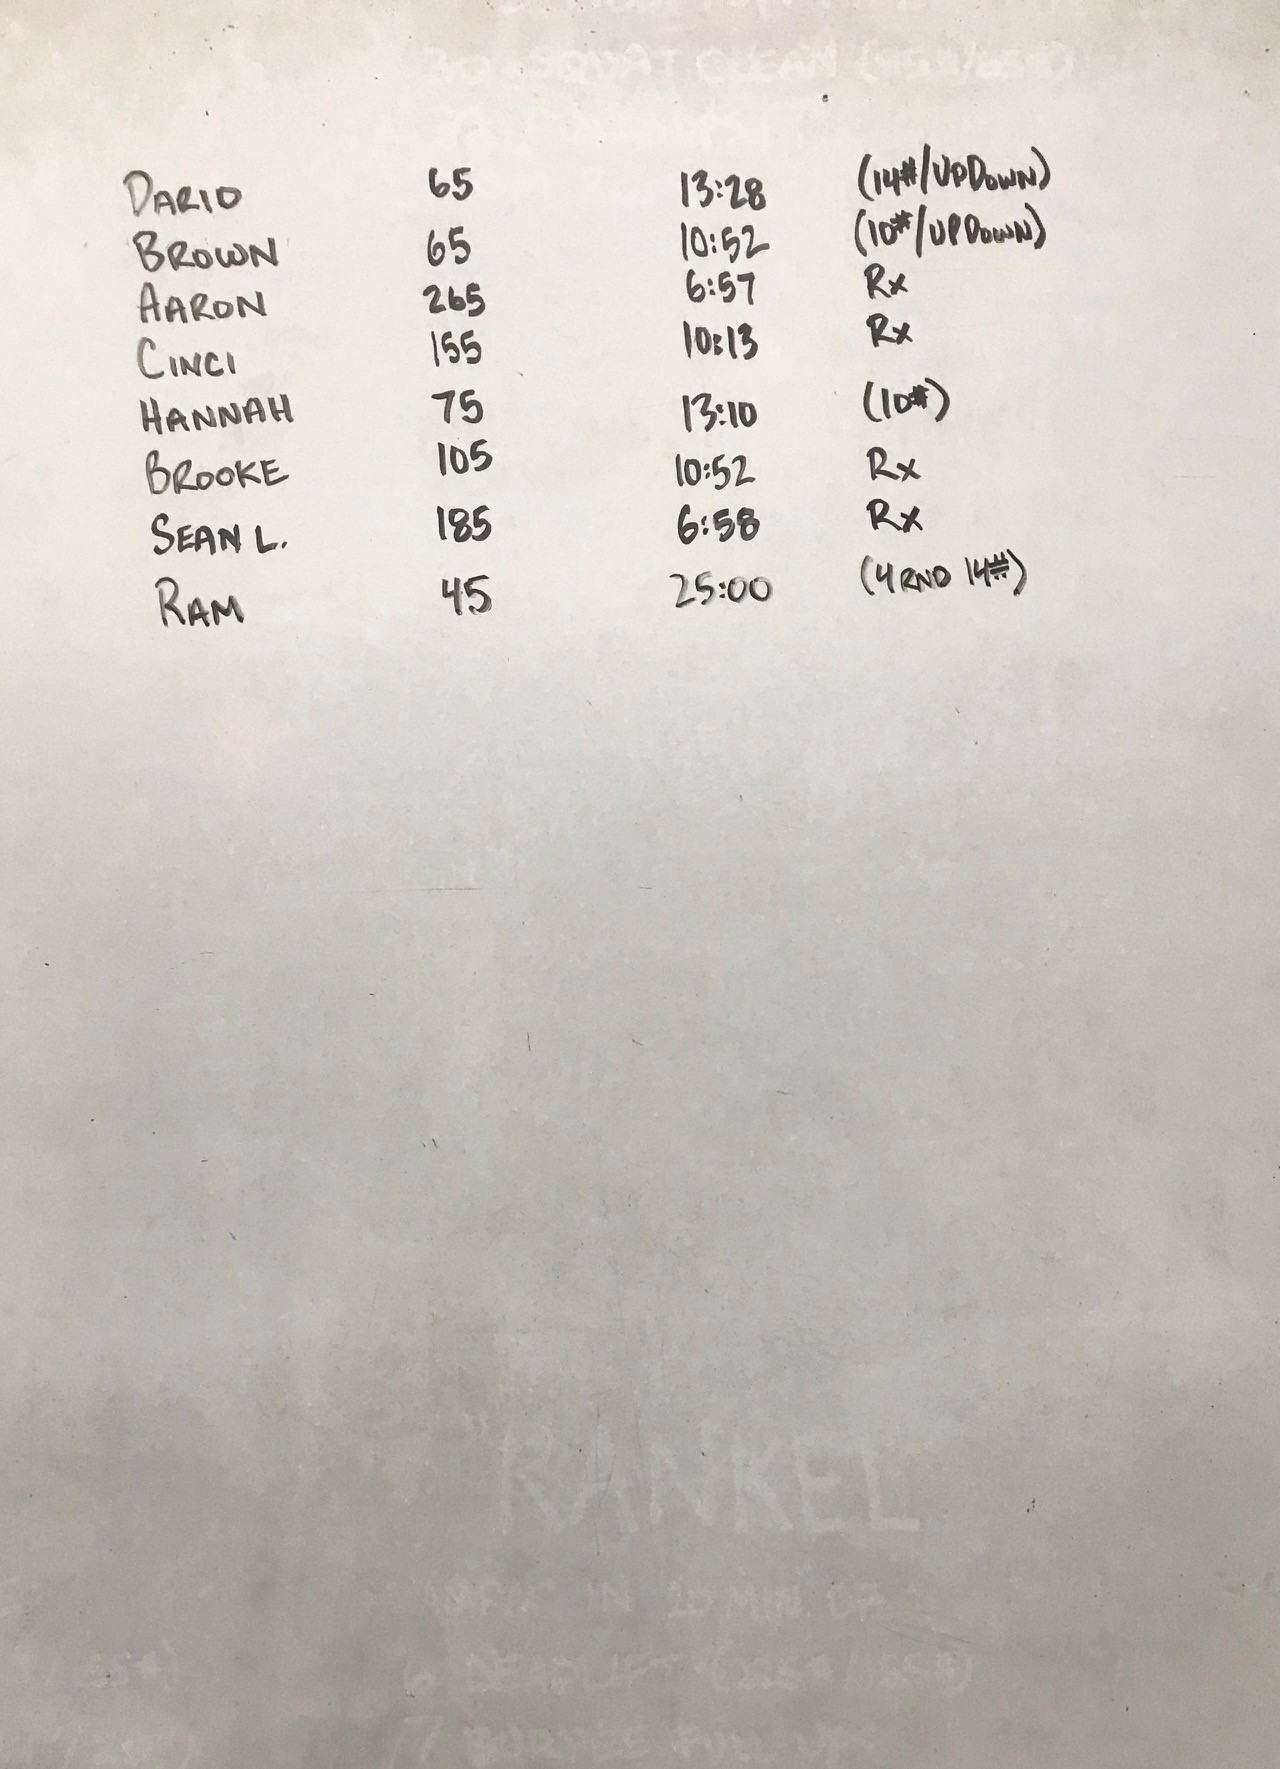 DARIO 65 13:28 (14#/UPDOWN)
BROWN 65 10:52 (10#/UPDOWN)
AARON 265 6:57 Rx
CINCI 155 10:13 Rx
HANNAH 75 13:10 (10#)
BROOKE 105 10:52 Rx
SEAN L. 185 6:58 Rx
RAM 45 25:00 (4 RND 14#)
"RANKEL"
IN 20 MIN OF
6 DEADLIFT
7 BURPEE PULL-UPS